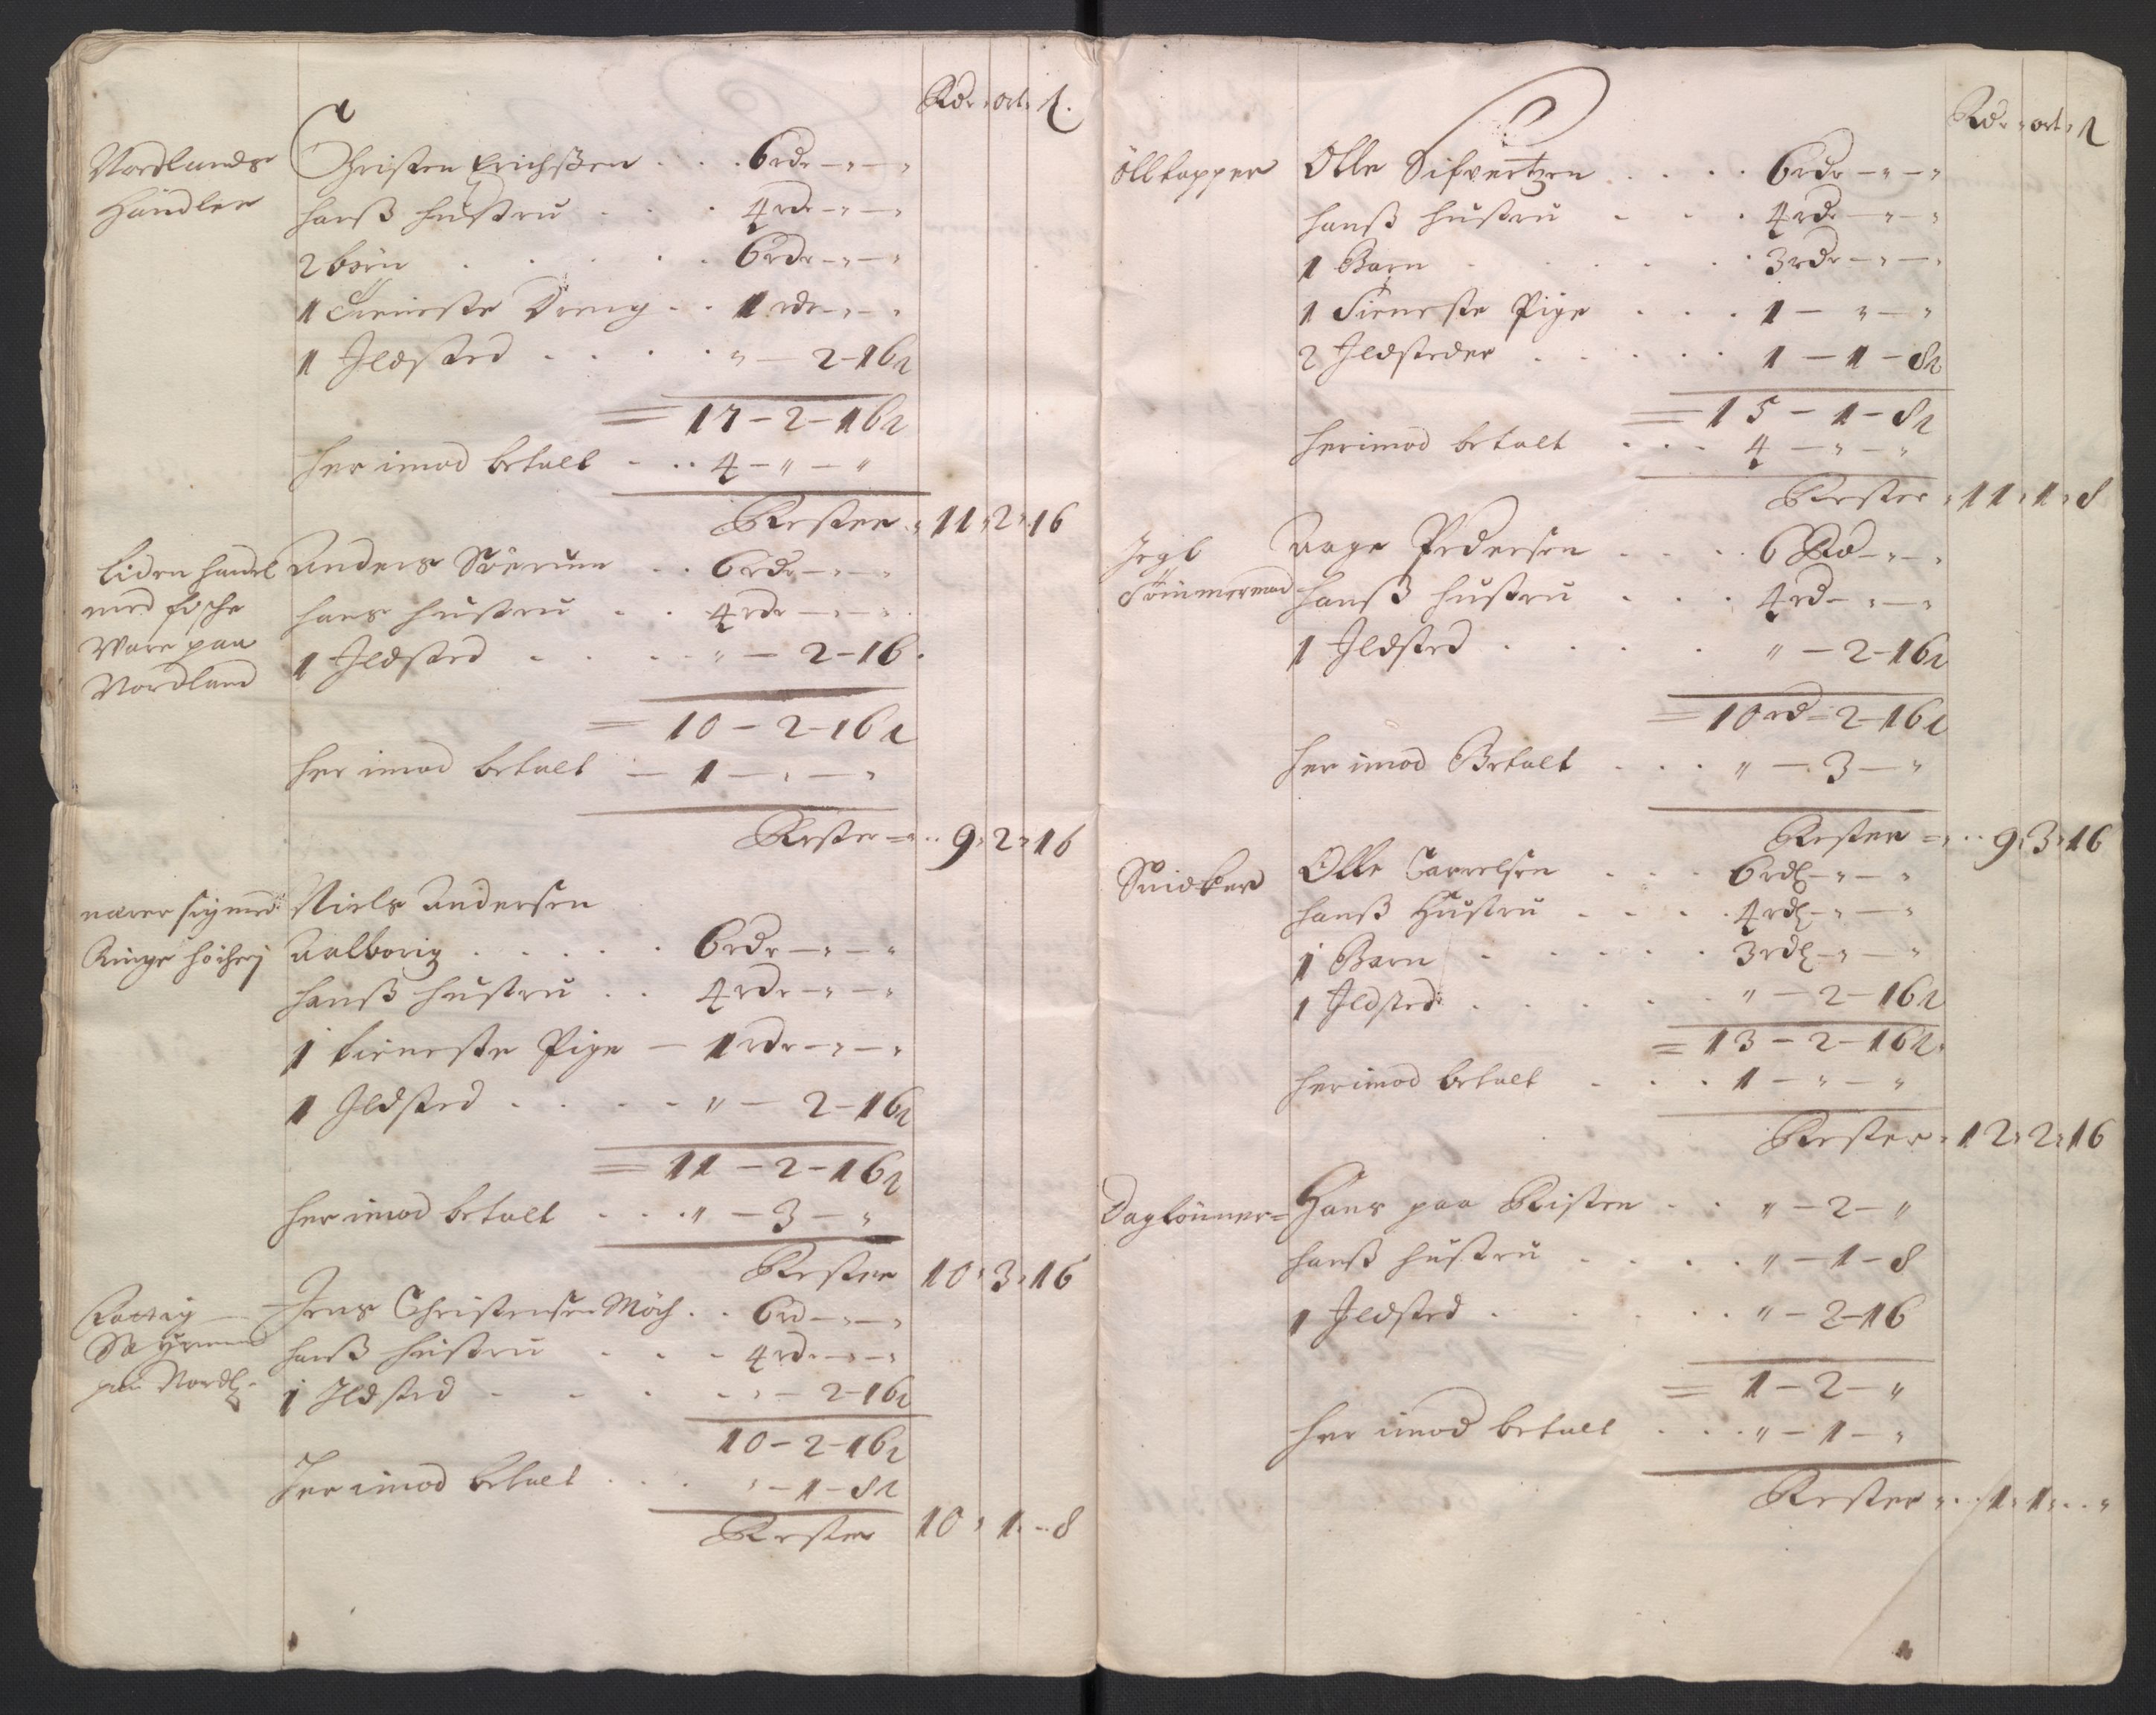 Rdr ort ß.
Nordlands Christen Erichßen . . . 6 rdr - " - "
Handler hanß hustru . . . 4 rdr - " - "
2 börn . . . . . 6 rdr - " - "
1 Tieneste Dreng . . 1 rdr - " - "
1 Ildsted . . . . " - 2 - 16 ß
= 17 - 2 - 16 ß
her imod betalt . . . 4 - " - "
Rester . 11 " 2 " 16
liden handel Anders Söerum . . 6 rdr - " - "
med fische hans hustru . . 4 rdr - " - "
Ware paa 1 Ildsted . . . . " - 2 - 16 .
Nordland
= 10 - 2 - 16 ß
her imod betalt - 1 - " - "
Rester = . . 9 " 2 " 16
nærer sig med Niels Andersen
Ringe Aalborig . . . . . 6 rdr - " - "
hanß hustru . . 4 rdr - " - "
1 tieneste Pige - 1 rdr - " - "
1 Ildsted . . . . " - 2 - 16 ß
= 11 - 2 - 16 ß
her imod betalt . . . " - 3 - "
Rester 10 " 3 " 16
Jens Christensen Möch . . 6 rd - " - "
hanß hustru . . . 4 rd - " - "
paa Nordl 1 Ildsted . . . . " - 2 - 16 ß
10 - 2 - 16 ß
Her imod betalt . . . " - 1 - 8 ß
Rester 10 " 1 . . 8
Rdr ort ß
ölltapper Olle Sifvertzen . . . . 6 rdr - " - "
hanß hustru . . . 4 rdr - " - "
1 Barn . . . . . 3 rdr - " - "
1 Tieneste Pige . . . 1 - " - "
2 Ildsteder . . . . . 1 - 1 - 8 ß
= 15 - 1 - 8 ß
herimod betalt . . . 4 - " - "
Rester " 11 " 1 " 8
Jegt Aage Pedersen . . . . 6 Rd - " - "
Tömmermand hanß hustru . . . 4 rd - " - "
1 Ildsted . . . . " - 2 - 16 ß
= 10 rd = 2 - 16 ß
her imod Betalt . . . " - 3 - "
Rester = . . 9 " 3 " 16
Snidker Olle Carrelsen . . . 6 rdl - " - "
hanß Hustru . . . . 4 rdl - " - "
1 Barn . . . . . 3 rdl - " - "
1 Ildsted . . . . . " - 2 - 16 ß
= 13 - 2 - 16 ß
herimod betalt . . . 1 - " - "
Rester " 12 " 2 " 16
Daglönner = Hans paa Risten . . " - 2 - "
hanß hustru . . . . " - 1 - 8
1 Ildsted . . . . . " - 2 - 16
= 1 - 2 - "
her imod betalt . . . " - 1 - "
Rester " . . 1 " 1 " . . "